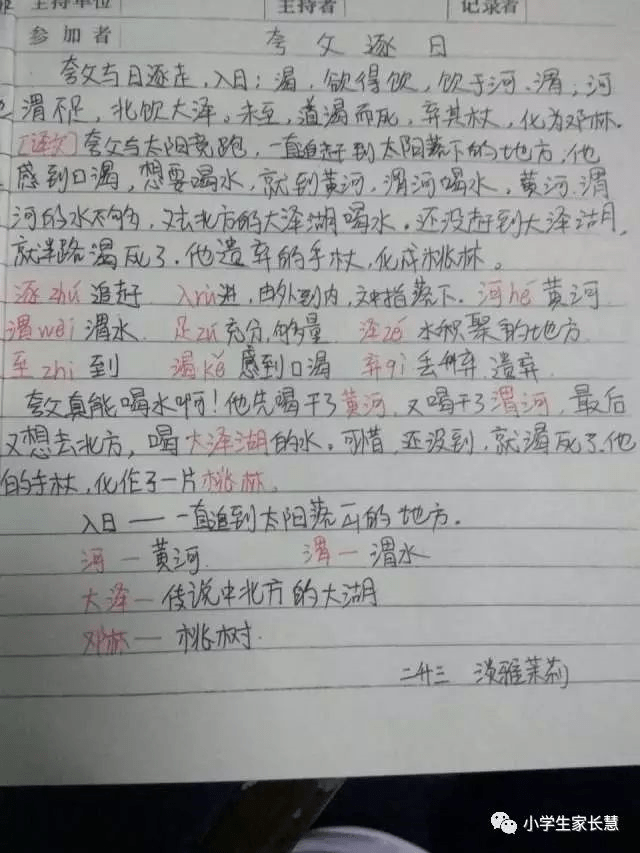 主持单位 主持者 记录者
参加者 夸父逐日
夸父与日逐走，入日；渴，欲得饮，饮于河、渭；河
渭不足，北饮大泽。未至，道渴而死，弃其杖，化为邓林。
[译文]夸父与太阳竞跑，一直追赶到太阳落下的地方，他
感到口渴，想要喝水，就到黄河，渭河喝水，黄河、渭
河的水不够，又去北方的大泽湖喝水。还没赶到大泽湖，
就半路渴死了。他遗弃的手杖，化成桃林。
逐zhú 追赶 入rù进，由外到内，文中指落下. 河hé 黄河
渭wèi 渭水 足zú 充分，够量 泽zé 水积聚的地方
至zhì 到 渴kě 感到口渴 弃qì 丢弃，遗弃
夸父真能喝水啊！他先喝干了黄河，又喝干了渭河，最后
又想去北方，喝大泽湖的水。可惜，还没到，就渴死了。他
的手杖，化作了一片桃林。
入日——一直追到太阳落山的地方。
河—黄河 渭—渭水
大泽—传说中北方的大湖
邓林—桃树.
二廿三 淡雅茉莉
小学生家长慧